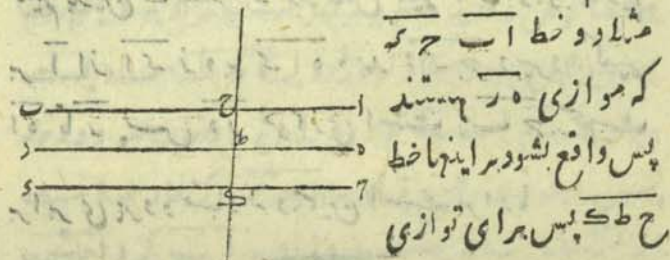 مثلا دو خط ا ب ح ء
که موازی ه ر هستند
پس واقع بشود بر اینها خط
ح ط ک پس برای توازی
ا ح ب
ه ط ر
ح ک ء